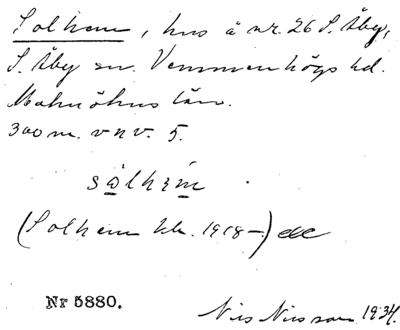 Solhem, hus å nr. 26 S. Åby,
S. Åby sn. Vemmenhögs hd.
Malmöhus län.
300 m. v n v. 5.
sålhęm
(Solhem kk. 1918-)
Nr 5880.
Nils Nilsson 1934.